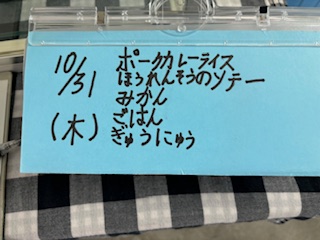 10/31
(木)
ポークカレーライス
ほうれんそうのソテー
みかん
ごはん
ぎゅうにゅう